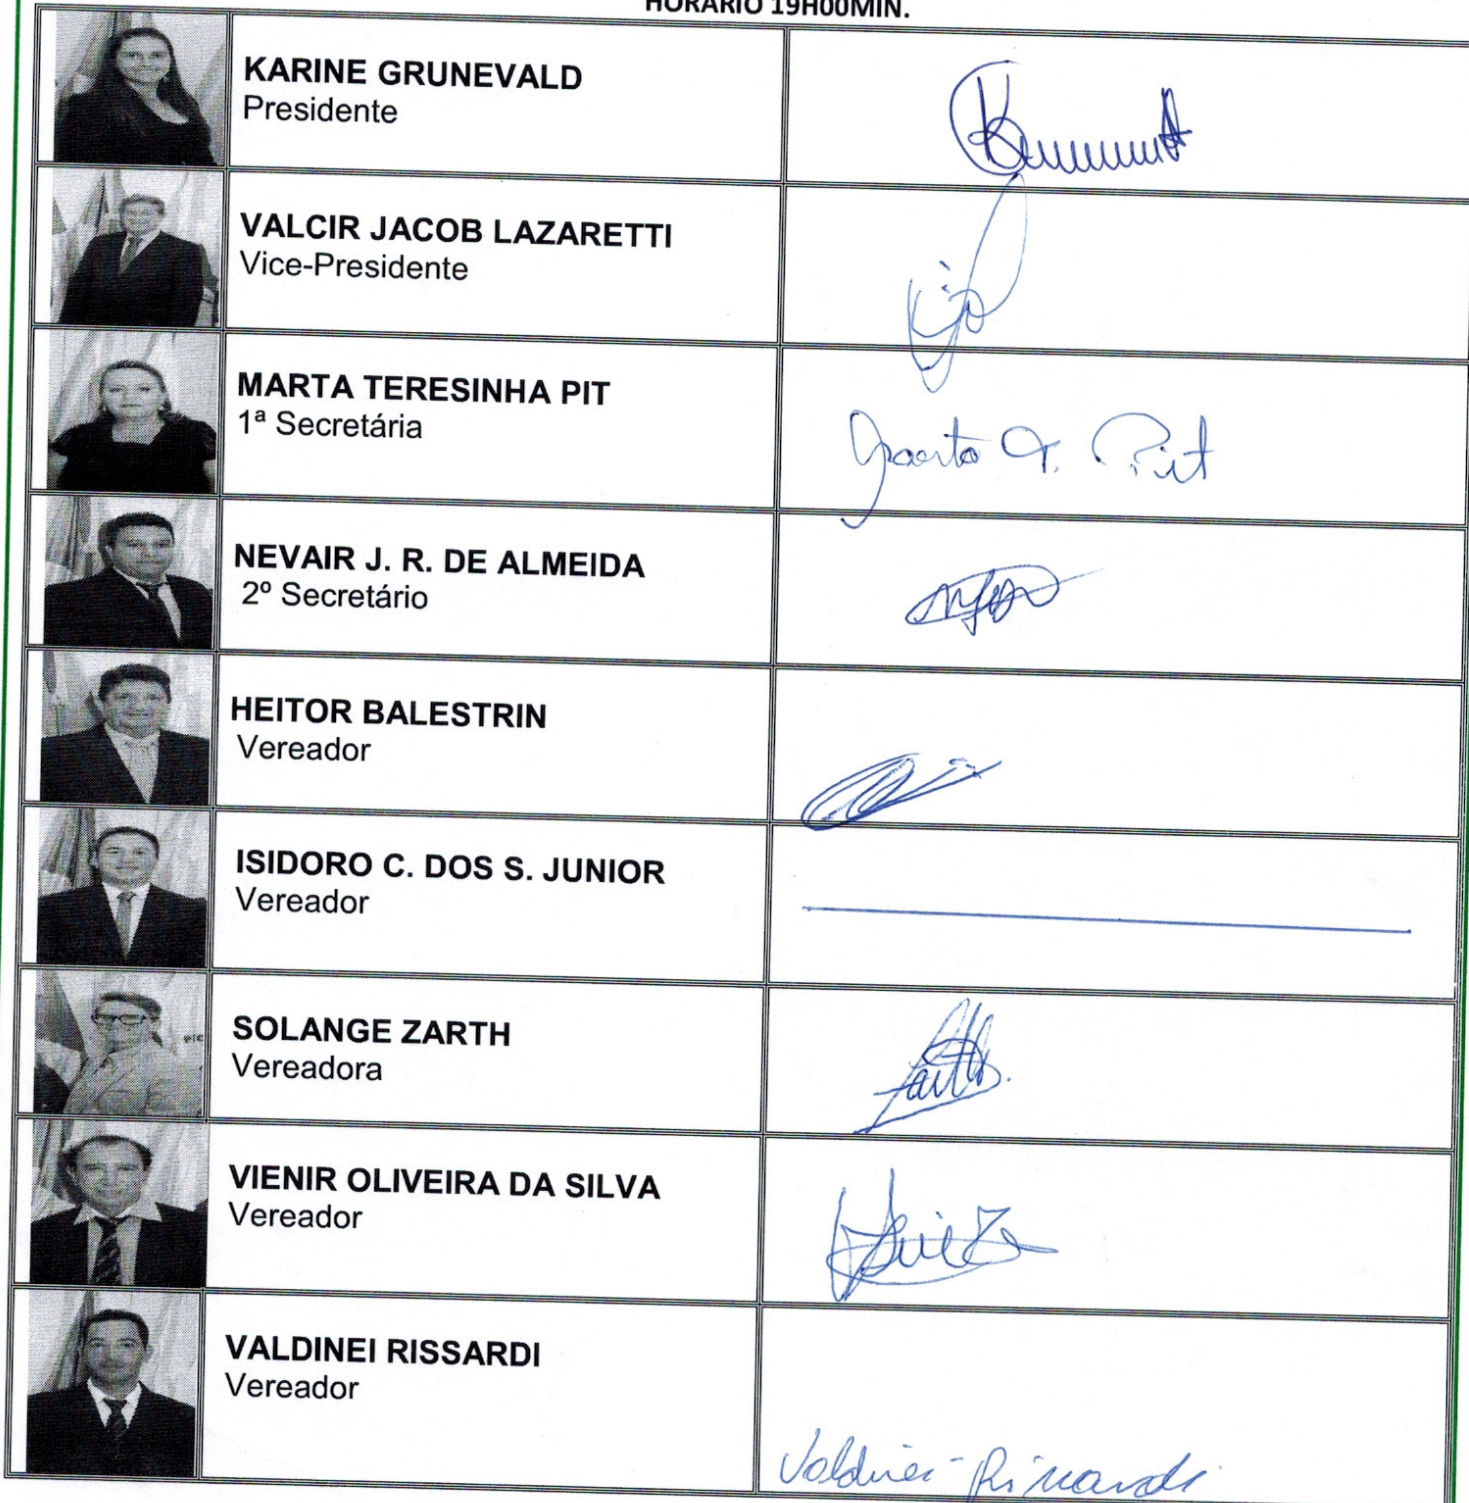 HORÁRIO 19H00MIN.
KARINE GRUNEVALD
Presidente
VALCIR JACOB LAZARETTI
Vice-Presidente
MARTA TERESINHA PIT
1ª Secretária
Marta T. Pit
NEVAIR J. R. DE ALMEIDA
2º Secretário
HEITOR BALESTRIN
Vereador
ISIDORO C. DOS S. JUNIOR
Vereador
SOLANGE ZARTH
Vereadora
Zarth
VIENIR OLIVEIRA DA SILVA
Vereador
VALDINEI RISSARDI
Vereador
Valdinei Rissardi